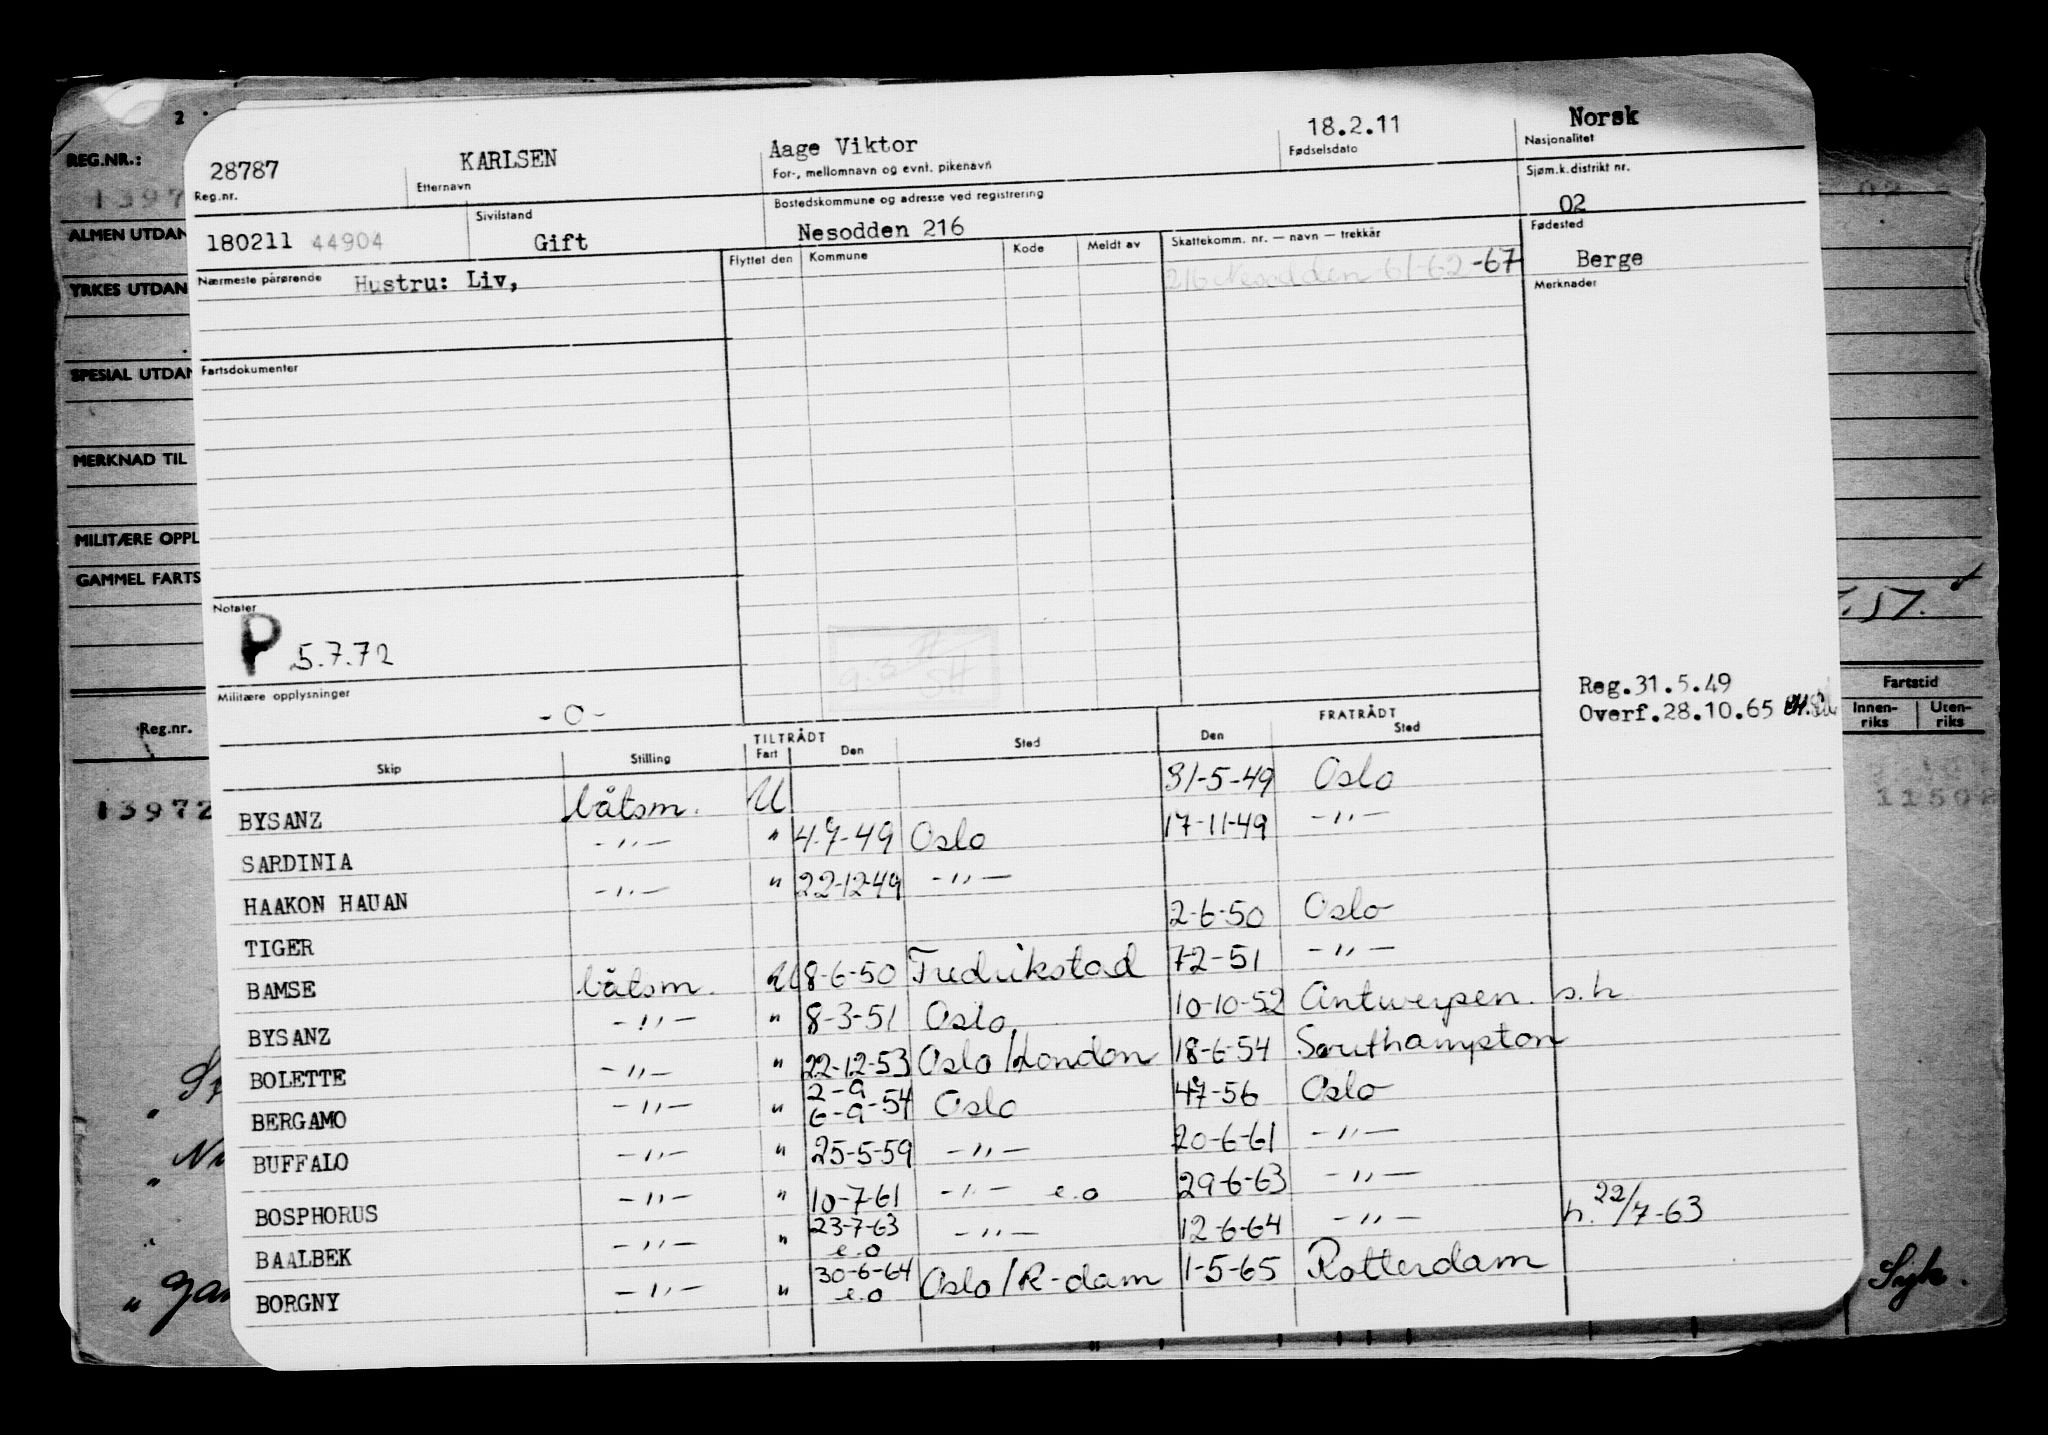 2
REG.NR.:
1397
ALMEN UTDAN
YRKES UTDAN
SPESIAL UTDAN
MERKNAD TIL
MILITÆRE OPPL
GAMMEL FARTS
Reg.nr.
13972
28787 KARLSEN Aage Viktor 18.2.11 Norsk
Reg.nr. Etternavn For-, mellomnavn og evnt. pikenavn Fødselsdato Nasjonalitet
180211 44904 Sivilstand Gift Bostedskommune og adresse ved registrering Nesodden 216 Sjøm.k.distrikt nr. 02
Nærmeste pårørende Hustru: Liv, Flyttet den Kommune Kode Meldt av Skattekomm. nr. — navn — trekkår Fødested
216 Nesodden 61-62-67 Berge
Merknader
Fartsdokumenter
Notater
P 5.7.72
Militære opplysninger
-0-
Reg.31.5.49
Overf.28.10.65
Fartstid
Innen-riks Uten-riks
TILTRÅDT FRATRÅDT
Skip Stilling Fart Den Sted Den Sted
BYSANZ båtsm. U 31-5-49 Oslo
SARDINIA -"- " 4-7-49 Oslo 17-11-49 -"-
HAAKON HAUAN -"- " 22-12-49 -"-
TIGER 2-6-50 Oslo
BAMSE båtsm. U 8-6-50 Fredrikstad 7-2-51 -"-
BYSANZ -"- " 8-3-51 Oslo 10-10-52 Antwerpen. s.h
BOLETTE -"- " 22-12-53 Oslo/London 18-6-54 Southampton
BERGAMO -"- " 2-9 6-9-54 Oslo 4-7-56 Oslo
BUFFALO -"- " 25-5-59 -"- 20-6-61 -"-
BOSPHORUS -"- " 10-7-61 -"- e.o 29-6-63 -"-
BAALBEK -"- " 23-7-63 e.o -"- 12-6-64 -"- h. 22/7-63
BORGNY -"- " 30-6-64 e.o Oslo/R-dam 1-5-65 Rotterdam
Syk.